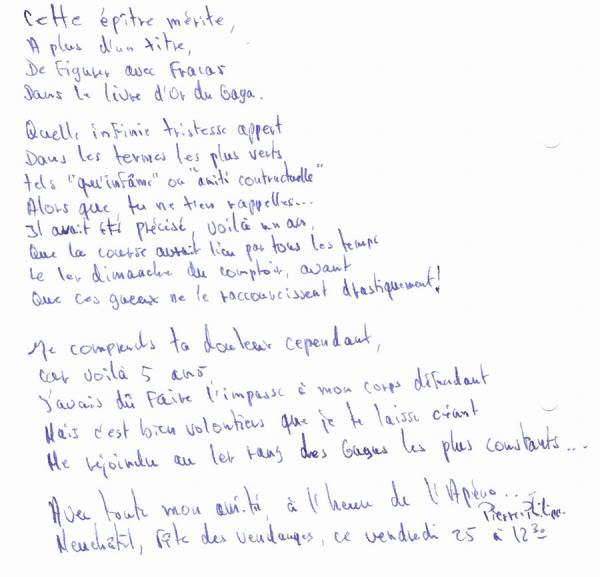 Cette épître mérite,
A plus d'un titre,
De Figurer avec Fracas
Dans le livre d'Or du Gaga.
Quelle infinie tristesse appert
Dans les termes les plus verts
tels "qu'infâme" ou "amiti contractuelle"
Alors que, tu ne t'en rappelles...
Il avait été précisé, voilà un an,
Que la course aurait lieu par tous les temps
Le 1er dimanche du comptoir, avant
Que ces gueux ne le raccourcissent drastiquement!
Je comprends ta douleur cependant,
car voilà 5 ans,
J'avais dû Faire l'impasse à mon corps défendant
Mais c'est bien volontiers que je te laisse céant
Me rejoindre au 1er rang des Gagas les plus constants...
Avec toute mon amitié, à l'heure de l'Apéro...
Pierre-
Neuchâtel, Fête des vendanges, ce vendredi 25 à 12 30